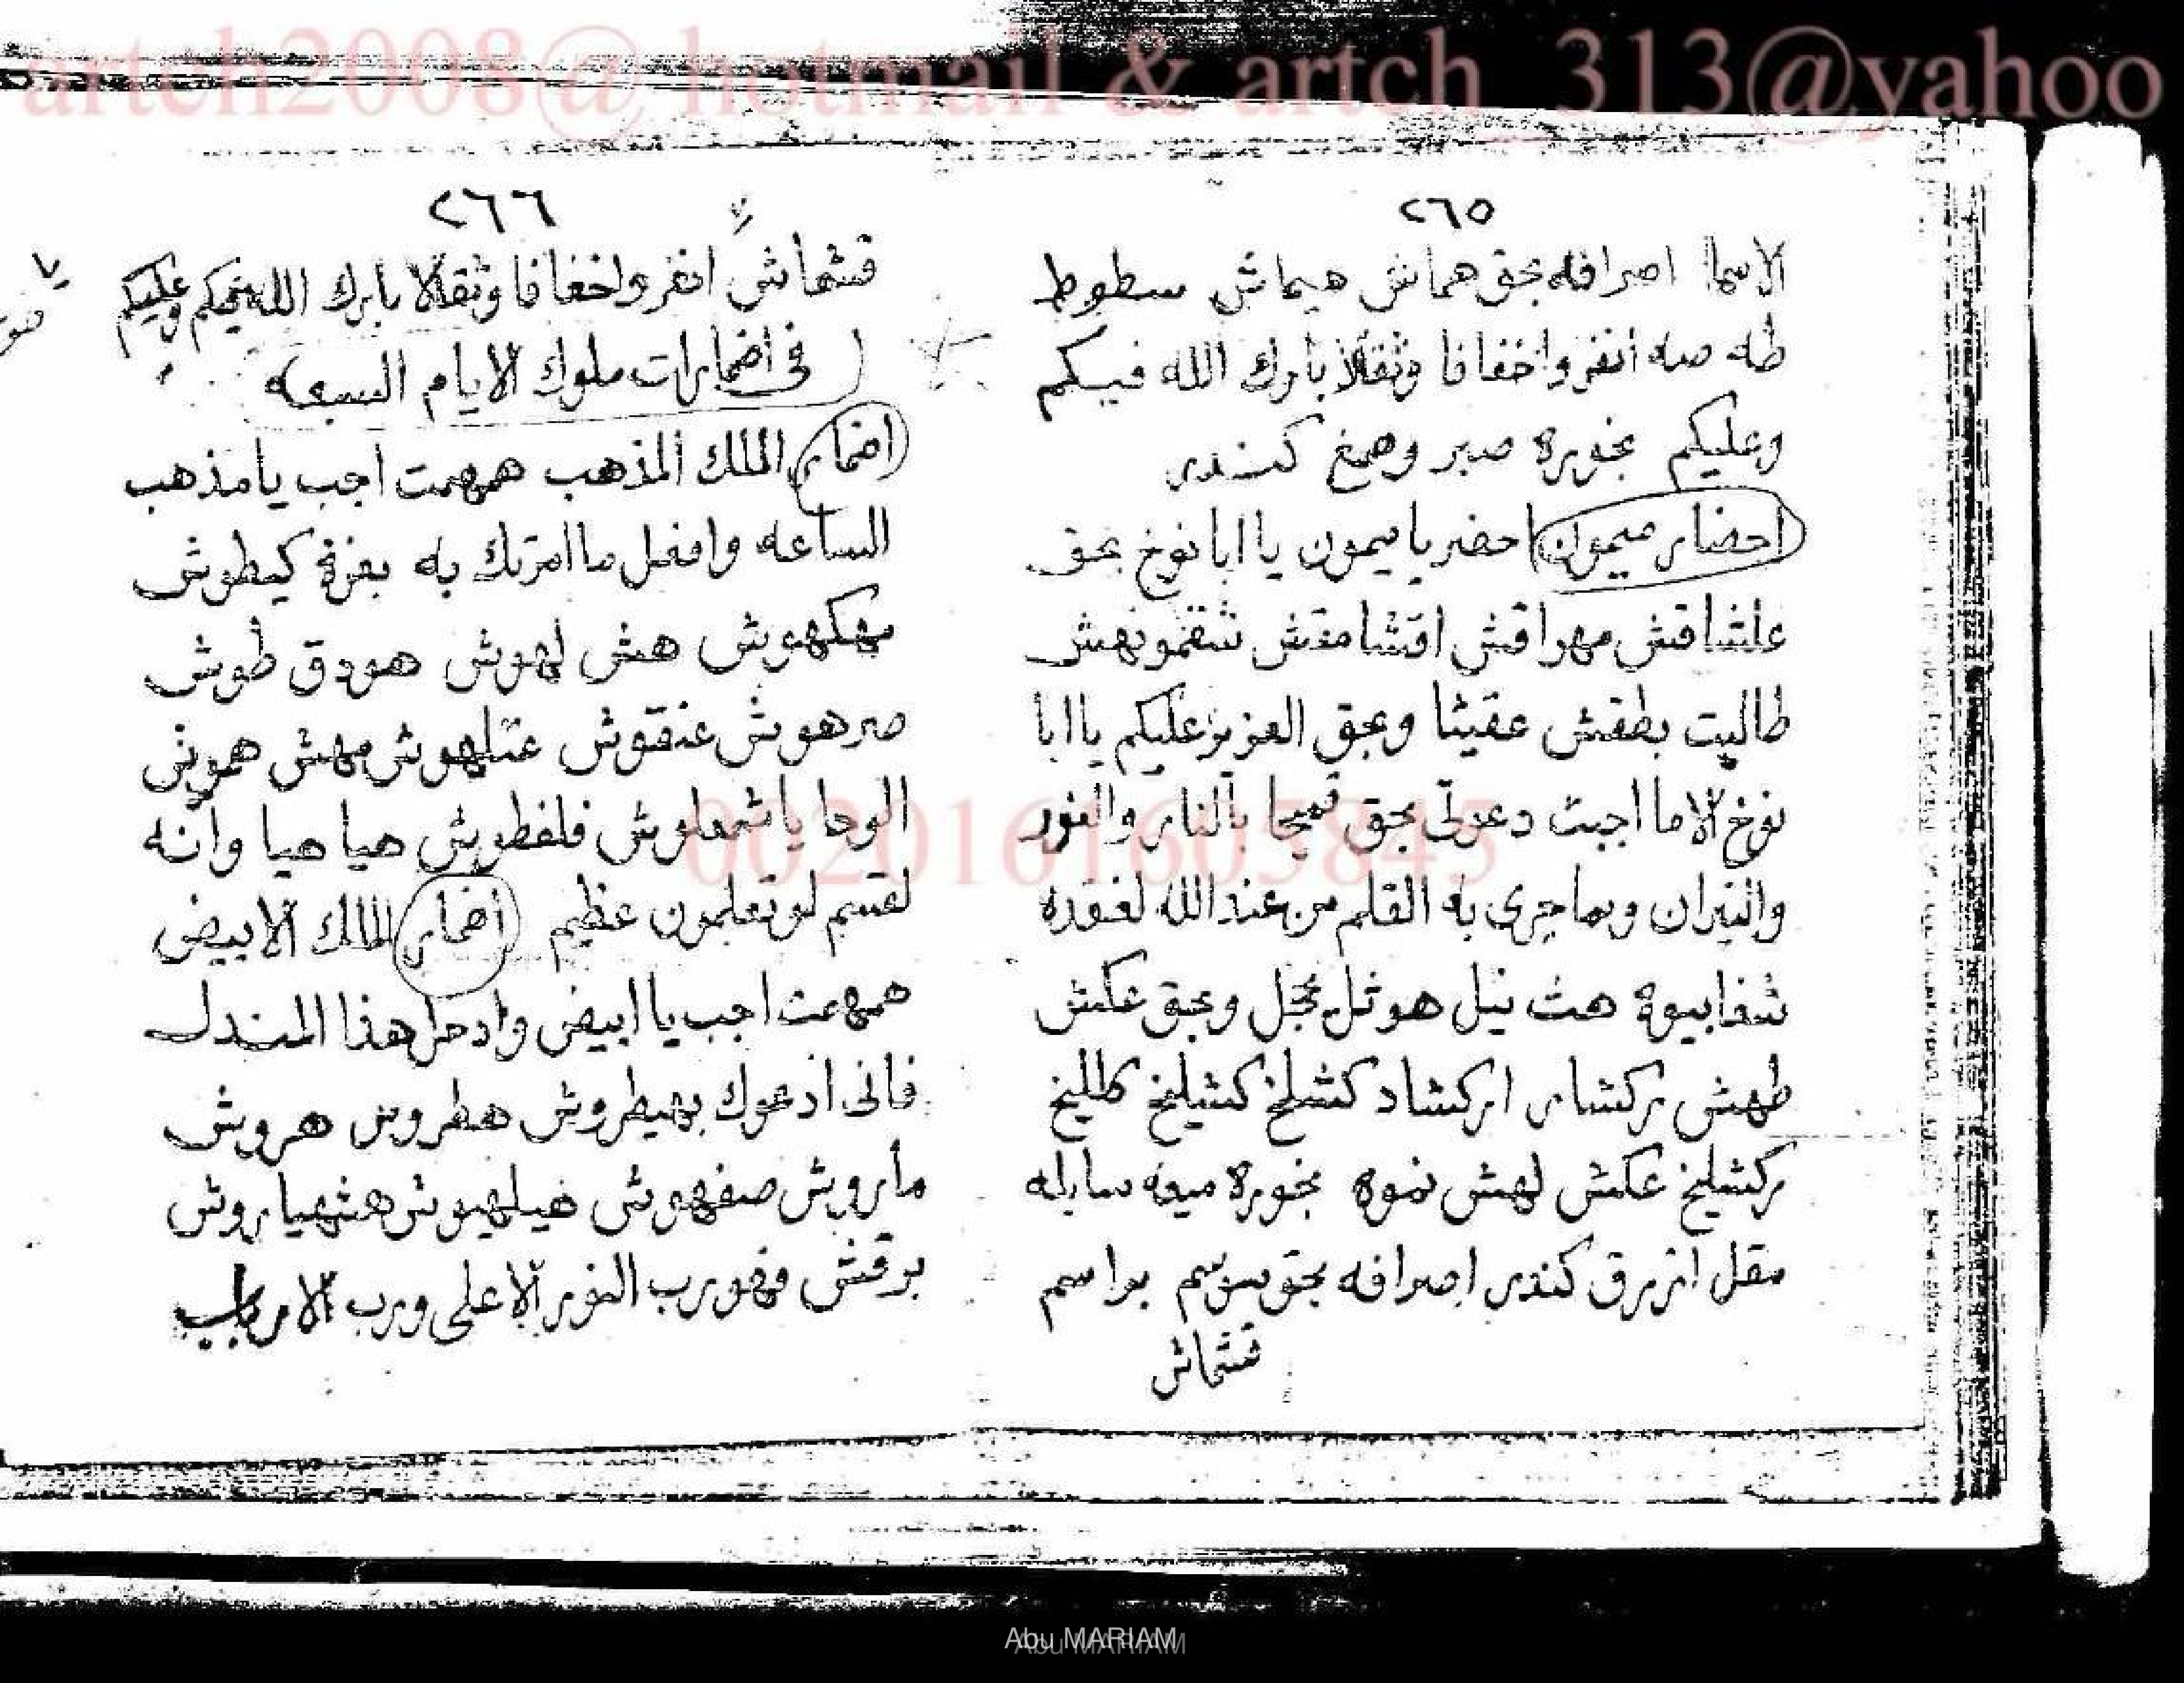 artch2008@ hotmail & artch_313@yahoo
٢٦٥
الاسما اصرافه بحق هماش هيماش سطوط
طه صه انفروا خفافا وثقالا بارك الله فيكم
وعليكم بخوره صبر وصمغ كندر
احضار ميمون احضر يا ميمون يا ابا نوخ بحق
علشاقش مهراقش اقشامقش شقمونهش
طاليت بطقش عقيثا وبحق العزيز عليكم يا ابا
نوخ الا ما اجبت دعوتى بحق بالنار والنور
والنيران وبما جرى به القلم من عند الله
هث نيل هوثل وبحق عكش
طهش ركشار اركشاد كشلخ كشيلخ كطليخ
ركشليخ عكش لهش نموه بخوره ميعه سايله
مقل ازرق كندر اصرافه بحق براسم
قشماش
٢٦٦
قشماش انفروا خفافا وثقالا بارك الله فيكم وعليكم
فى اضمارات ملوك الايام السبعه
اضمار الملك المذهب همهمت اجب يا مذهب
الساعه وافعل ما امرتك به بعزة كيطوش
بهكهوش هش لهوش هودق طوش
صرهوش عنقوش عتلهوش مهش هموش
الوحا يا شمعلوش فلفطوش هيا هيا وانه
لقسم لو تعلمون عظيم اضمار الملك الابيض
همهمت اجب يا ابيض وادخل هذا المندل
فانى ادعوك بهيطروش هطروش هروش
ماروش صفهوش ضيلهيوش هشهياروش
برقش فهو رب النور الاعلى ورب الارباب
00201616053845
Abu MARIAM